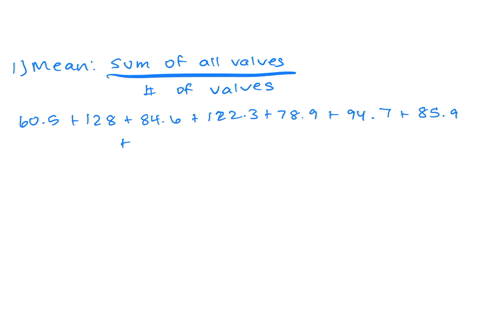 1) Mean: sum of all values
# of values
60.5 + 128 + 84.6 + 122.3 + 78.9 + 94.7 + 85.9
+